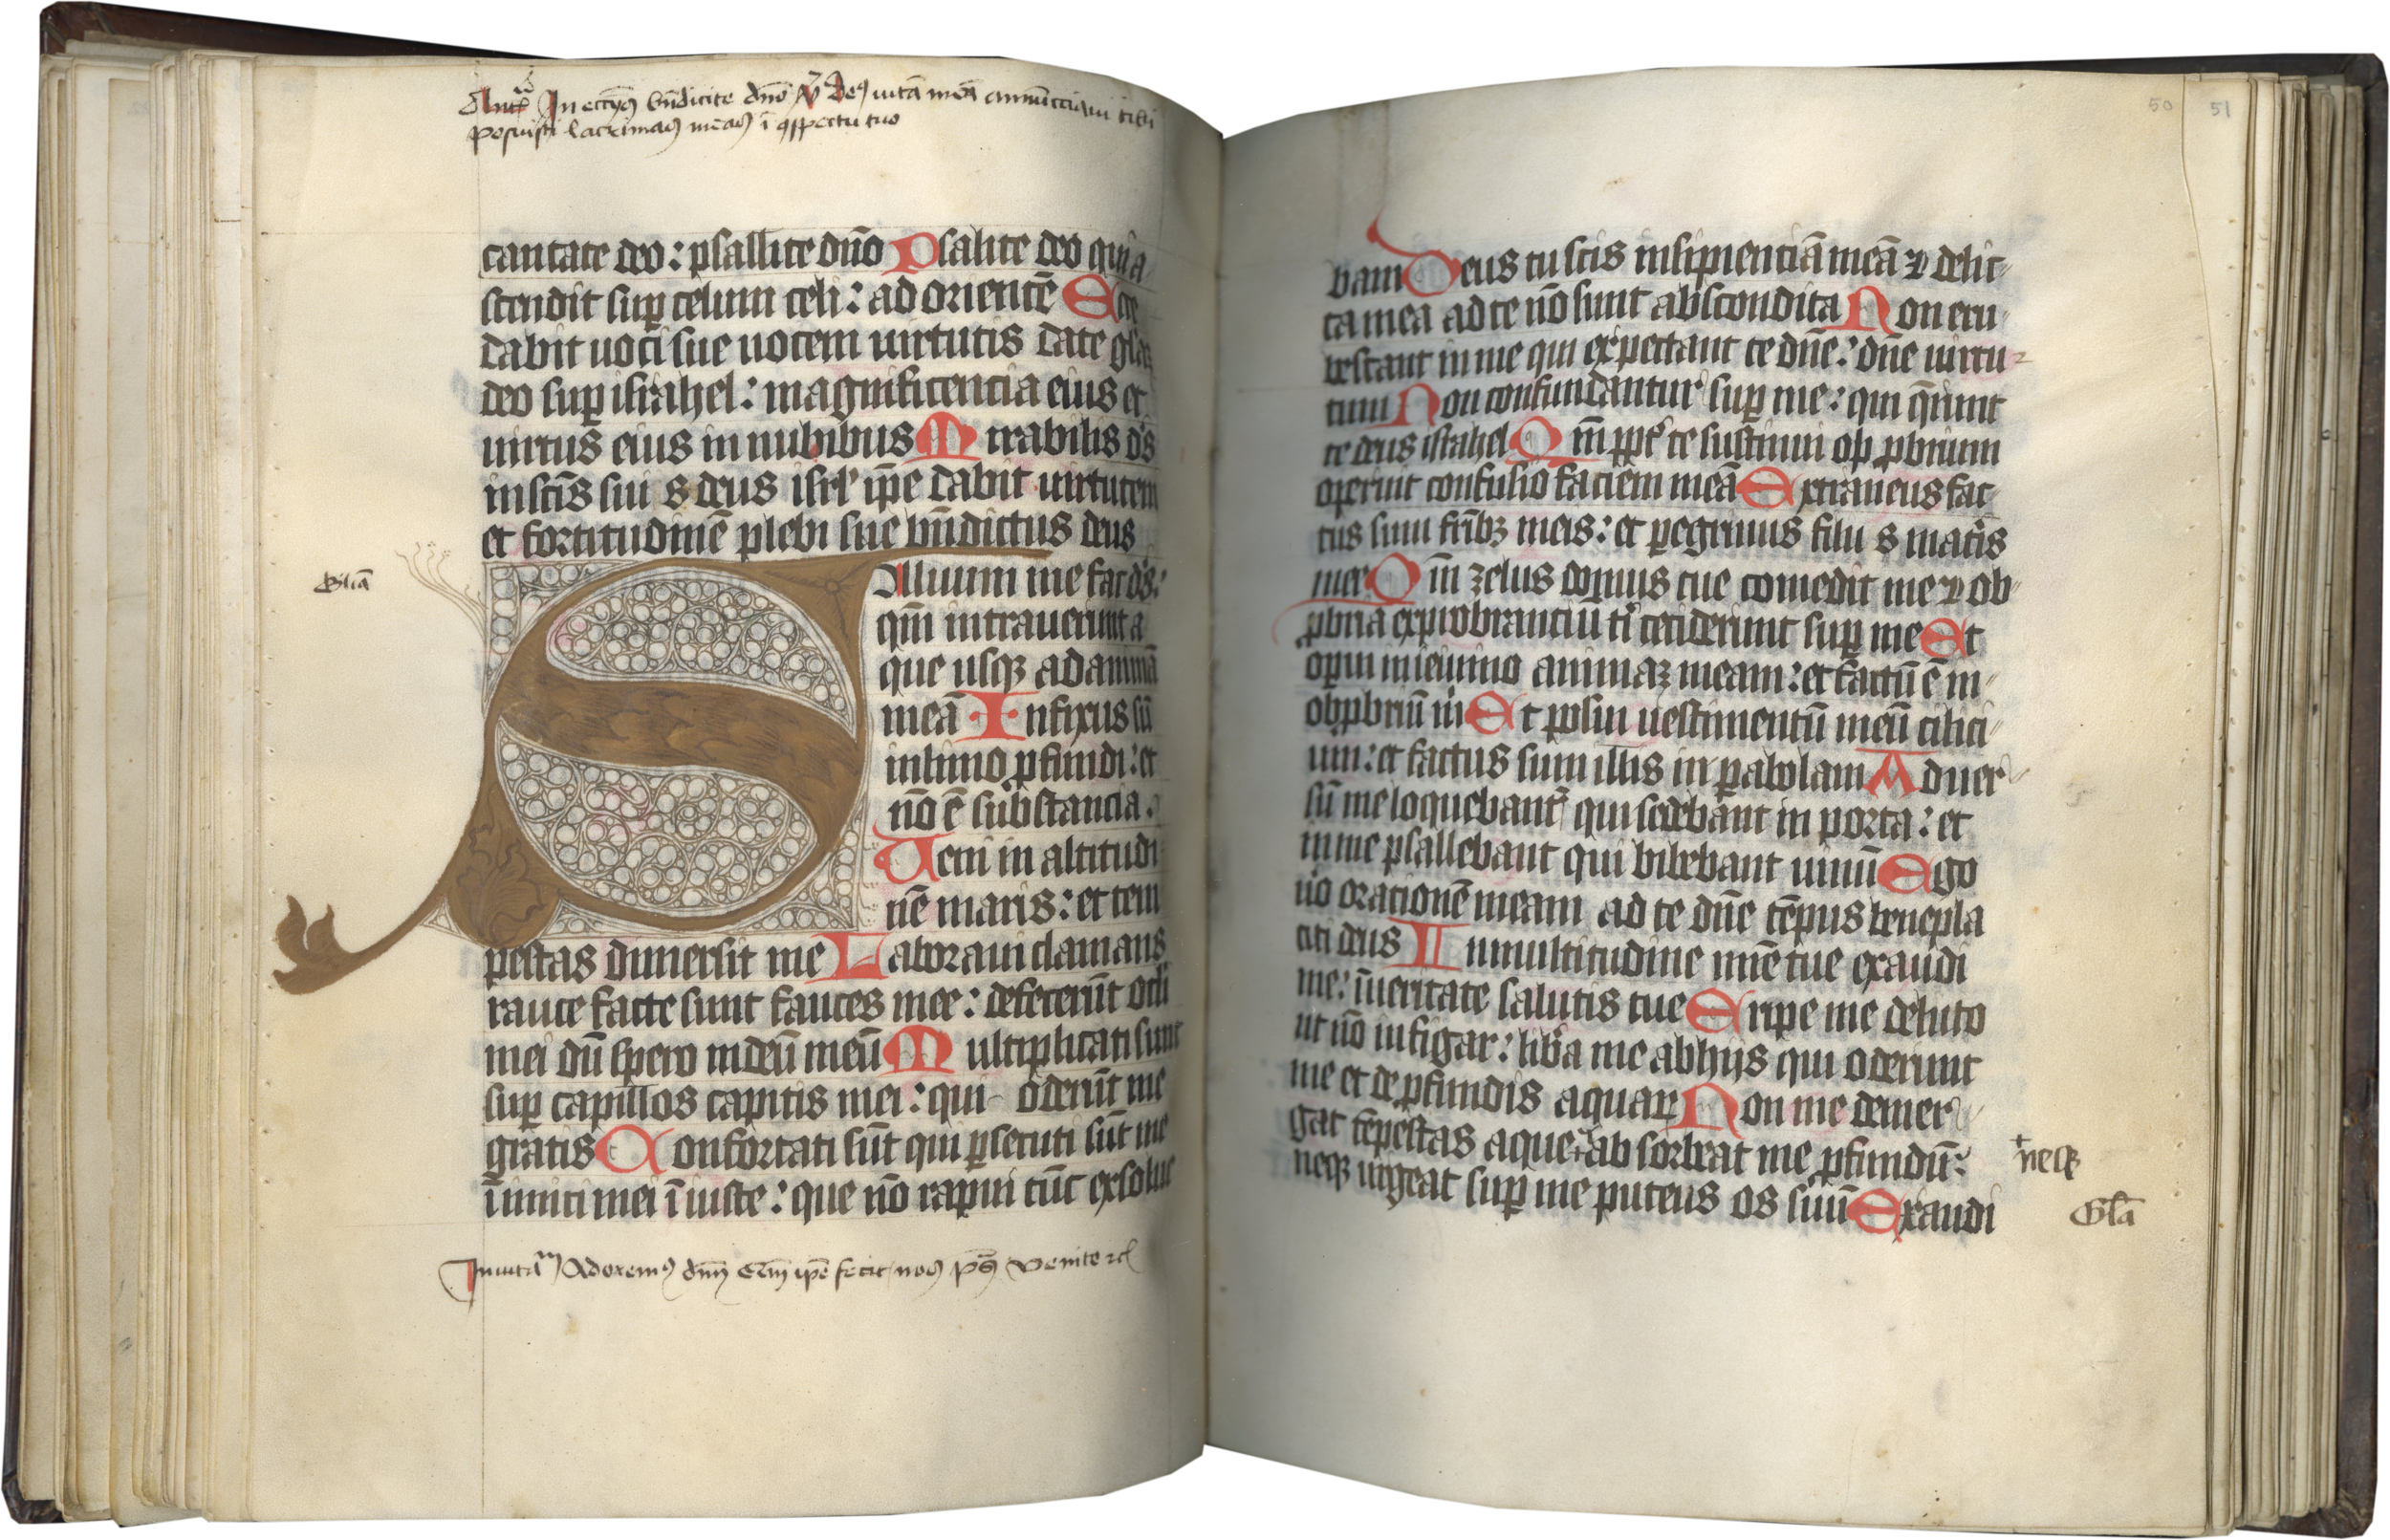 Ant In eccłijs bn̄dicite dn̄o V Deꝰ uitā meā annūcciaui tibi
posuisti lacrimas meas ī ↄspectu tuo
cantate deo : psallite dn̄o Psalite deo qui a
scendit suꝑ celum celi : ad orientē Ecce
dabit uoci sue uocem uirtutis date gl̄iaꝫ
deo suꝑ israhel : magnificencia eius et
uirtus eius in nubibus Mirabilis ds̄
in scīs sui s deus isrl̓ ip̄e dabit uirtutem
et fortitudinē plebi sue bn̄dictus deus
Gl̄ia
Saluum me fac ds̄ :
qm̄ intrauerunt a
que usqꝫ ad animā
meā Infixus sū
in limo ꝓfundi : et
nō ē substancia .
Ueni in altitudi
nē maris : et tem
pestas dimersit me Laboraui clamans
rauce facte sunt fauces mee : defecerūt oculi
mei dū spero in deū meū Multiplicati sunt
suꝑ capillos capitis mei : qui oderūt me
gratis Confortati sūt qui ꝑsecuti sūt me
īimici mei īiuste : que nō rapui tūc exsolue
Inuitam̄ Adoremꝰ dn̄m Qm̄ ip̄e fecit nos ps̄ Venite ⁊cͥ
50 51
bam Deus tu scis insipienciā meā ⁊ delic
ta mea ad te nō sunt abscondita Non eru
bescant in me qui expectant te dn̄e : dn̄e uirtu
tum Non confundantur suꝑ me : qui q̄runt
te deus israhel Qm̄ ꝓpt̓ te sustinui opꝓbrium
operuit confusio faciem meā Extraneus fac
tus sum fr̄ibꝫ meis : et ꝑegrinus filiis matris
mee Qm̄ zelus domus tue comedit me ⁊ ob
ꝓbria exprobranciū ti cecidernt suꝑ me Et
operui in ieiunio animaꝫ meam : et factū ē in
obꝓbriū m̓ Et posui uestimentū meū cilici
um : et factus sum illis in ꝑabolam Aduer
sū me loquebant̓ qui sedebant in porta : et
in me psallebant qui bibebant uinū Ego
uō orationē meam ad te dn̄e tēpus benepla
citi deus In multitudine mīe tue exaudi
me : īueritate salutis tue Eripe me de luto
ut nō infigar : lib̓a me ab hijs qui oderunt
me et de ꝓfundis aquaꝝ Non me demer
gat tēpestas aque + absorbeat me ꝓfundū :
+ neqꝫ
neqꝫ urgeat suꝑ me puteus os suū Exaudi
Gl̄a